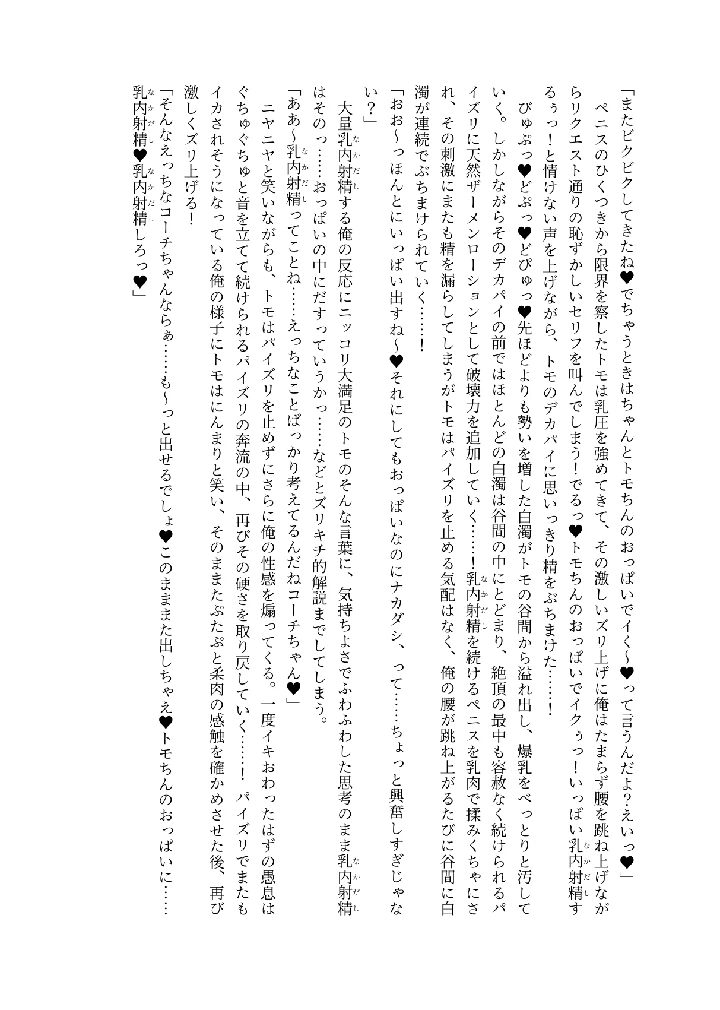 「またビクビクしてきたね♥でちゃうときはちゃんとトモちんのおっぱいでイく～♥って言うんだよ？えいっ♥」
ペニスのひくつきから限界を察したトモは乳圧を強めてきて、その激しいズリ上げに俺はたまらず腰を跳ね上げなが
らリクエスト通りの恥ずかしいセリフを叫んでしまう！でるっ♥トモちんのおっぱいでイクぅっ！いっぱい乳内射精す
るぅっ！と情けない声を上げながら、トモのデカパイに思いっきり精をぶちまけた……！
びゅぷっ♥どぷっ♥どぴゅっ♥先ほどよりも勢いを増した白濁がトモの谷間から溢れ出し、爆乳をべっとりと汚して
いく。しかしながらそのデカパイの前ではほとんどの白濁は谷間の中にとどまり、絶頂の最中も容赦なく続けられるパ
イズリに天然ザーメンローションとして破壊力を追加していく……！乳内射精を続けるペニスを乳肉で揉みくちゃにさ
れ、その刺激にまたも精を漏らしてしまうがトモはパイズリを止める気配はなく、俺の腰が跳ね上がるたびに谷間に白
濁が連続でぶちまけられていく……！
「おお～っほんとにいっぱい出すね～♥それにしてもおっぱいなのにナカダシ、って……ちょっと興奮しすぎじゃな
い？」
大量乳内射精する俺の反応にニッコリ大満足のトモのそんな言葉に、気持ちよさでふわふわした思考のまま乳内射精
はそのっ……おっぱいの中にだすっていうかっ……などとズリキチ的解説までしてしまう。
「ああ～乳内射精ってことね……えっちなことばっかり考えてるんだねコーチちゃん♥」
ニヤニヤと笑いながらも、トモはパイズリを止めずにさらに俺の性感を煽ってくる。一度イキおわったはずの愚息は
ぐちゅぐちゅと音を立てて続けられるパイズリの奔流の中、再びその硬さを取り戻していく……！　パイズリでまたも
イカされそうになっている俺の様子にトモはにんまりと笑い、そのままたぷたぷと柔肉の感触を確かめさせた後、再び
激しくズリ上げる！
「そんなえっちなコーチちゃんならぁ……も～っと出せるでしょ♥このまままた出しちゃえ♥トモちんのおっぱいに……
乳内射精♥乳内射精しろっ♥」